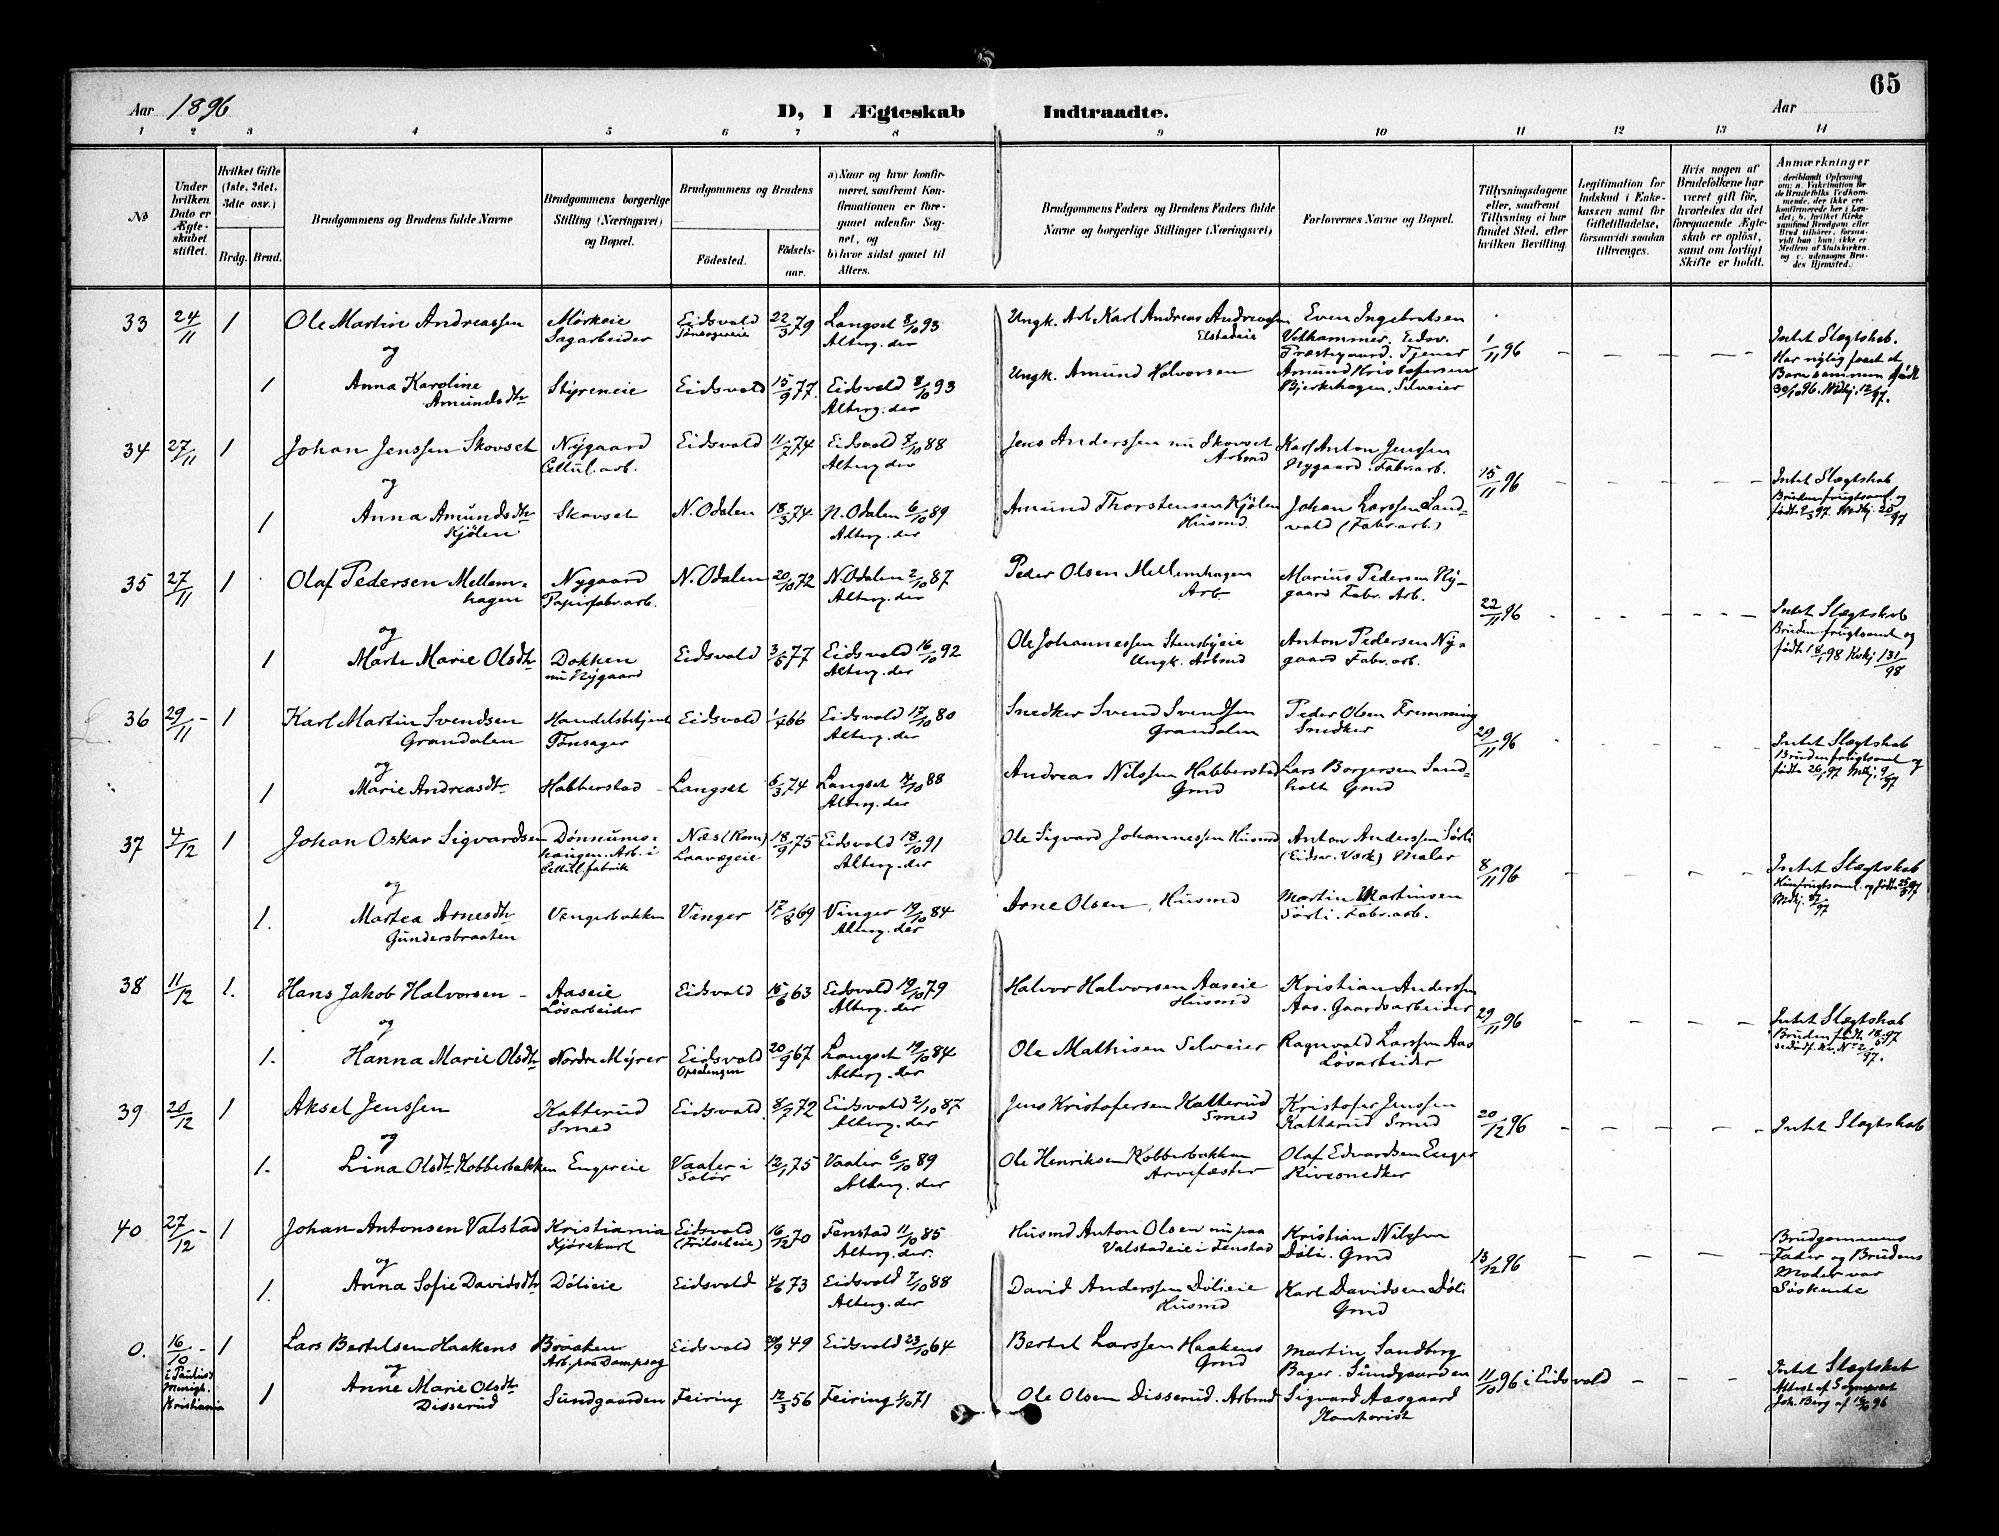 65
Aar 1896 D, I Ægteskab Indtraadte. Aar
1 2 3 4 5 6 7 8 9 10 11 12 13 14
No
Under hvilken Dato er Ægteskabet stiftet.
Hvilket Gifte (1ste, 2det, 3die osv.)
Brdg. Brud.
Brudgommens og Brudens fulde Navne
Brudgommens borgerlige Stilling (Næringsvei) og Bopæl.
Brudgommens og Brudens
Födested. Födsels-aar.
a) Naar og hvor konfirmeret, saafremt Konfirmationen er foregaaet udenfor Sognet, og
b) hvor sidst gaaet til Alters.
Brudgommens Faders og Brudens Faders fulde Navne og borgerlige Stillinger (Næringsvei)
Forlovernes Navne og Bopæl.
Tillysningsdagene eller, saafremt Tillysning ei har fundet Sted, efter hvilken Bevilling.
Legitimation for Indskud i Enkekassen samt for Giftetilladelse, forsaavidt saadan tiltrænges.
Hvis nogen af Brudefolkene har været gift før, hvorledes da det foregaaende Ægteskab er oplöst, samt om lovligt Skifte er holdt.
Anmærkninger
33 24/11 1 Ole Martin Andreassen Mörkeie Eidsvold 22/3 79 Langset 8/10 93 Ungk. Arb. Karl Andreas Andreassen Even Ingebretsen
Sagarbeider Tönsageie Alterg. der Elstadeie Vetkammer. Eidsv.
og Præstegaard. Tjener 1/11 96 Intet Slægtskab.
1 Anna Karoline Styreneie Eidsvold 15/9 77. Eidsvold 8/10 93 Ungk. Amund Halvorsen Amund Kristofersen Har nylig faaet et
Amundsdtr Alterg. der Bjerkehagen, Selveier Barn sammen födt
30/10 96.
34 27/11 1 Johan Jenssen Skovset Nygaard Eidsvold 11/7 74 Eidsvold 7/10 88 Jens Anderssen nu Skovset Karl Anton Jenssen
Cellul. arb. Alterg der Arbmd Nygaard. Fabr. arb.
og 15/11 96 Intet Slægtskab
1 Anna Amundsdtr Skovset N. Odalen 18/3 74 N. Odalen 6/10 89 Amund Thorstensen Kjölen Johan Larssen Sand- Bruden frugtsaml. og
Kjölen Alterg. der Husmd. vold (Fabr. arb.)
35 27/11 1 Olaf Pedersen Mellem- Nygaard N. Odalen 20/10 72 N. Odalen 2/10 87 Peder Olsen Mellemhagen Marius Pedersen Ny-
hagen Papirfabr. arb. Alterg. der Arb. gaard Fabr. Arb.
og 22/11 96 Intet Slægtskab
1 Marte Marie Olsdtr Dokken Eidsvold 3/5 77 Eidsvold 16/10 92 Ole Johannessen Stensbyeie Anton Pedersen Ny- Bruden frugtsaml og
nu Nygaard Alterg. der Ungk. Arbmd gaard Fabr. arb.
36 29/11 - 1 Karl Martin Svendsen Handelsbetjent Eidsvold 1/4 66 Eidsvold 17/10 80 Snedker Svend Svendsen Peder Olsen Fremming
Grandalen Tönsager Alterg. der Grandalen Snedker
og 29/11 96 Intet Slægtskab
1 Marie Andreasdtr Habberstad Langset 6/3 74 Langset 7/10 88 Andreas Nilssen Habberstad Lars Borgersen Sand- Bruden frugtsaml og
Alterg. der Gmd holt Gmd
37 4/12 1 Johan Oskar Sigvardsen Dönnums- Næs (Rom) 18/9 75 Eidsvold 18/10 91 Ole Sigvard Johannessen Husmd Anton Anderssen Sörli
haugen. Arb. i Laavegeie Alterg. der (Eidsv. Værk) Maler
Cellul. fabrik
og 8/11 96 Intet Slægtskab
1. Martea Arnesdtr Vengerbakken Vinger 17/8 69 Vinger 19/10 84 Arne Olsen, Husmd Martin Martinsen
Gundersbraaten Alterg. der Sörli. Fabr. arb.
38 11/12 1. Hans Jakob Halvorsen - Aaseie Eidsvold 15/6 63 Eidsvold 19/10 79 Halvor Halvorsen Aaseie Kristian Anderssen
Lösarbeider Alterg. der Husmd Aas. Gaardsarbeider
og 29/11 96 Intet Slægtskab
1. Hanna Marie Olsdtr Nordre Myrer Eidsvold 20/9 67 Langset 19/10 84 Ole Mathisen Selveier Ragnvald Larssen Aas
Opsalengen Alterg. der Lösarbeider
39 20/12 1 Aksel Jenssen Katterud Eidsvold. 8/7 72 Eidsvold 2/10 87 Jens Kristofersen Katterud Kristofer Jenssen
Smed Alterg. der Smed Katterud Smed 20/12 96 Intet Slægtskab
og
1. Lina Olsdtr Kobberbakken Engereie Vaaler i 12/1 75 Vaaler 6/10 89 Ole Henriksen Kobberbakken Olaf Edvardsen Enger
Solör Alterg. der Arvefæster Rivesnedker
40 27/12 - 1 Johan Antonsen Valstad Kristiania Eidsvold 16/12 70 Fenstad 11/10 85 Husmd Anton Olsen nu paa Kristian Nilssen Brudgommens
Kjörekarl (Fritseteie) Alterg. der. Valstadeie i Fenstad Döli. Gmd Fader og Brudens
og 13/12 96 Moder var
1. Anna Sofie Davidsdtr Dölieie Eidsvold 4/6 73 Eidsvold 7/10 88 David Anderssen Dölieie Karl Davidsen Döli Söskende
Alterg. der Husmd Gmd
0. 16/10 - 1 Lars Bertelsen Haakens Braaten Eidsvold 49 Eidsvold 23/10 64 Bertel Larssen Haakens Martin Sandberg
i Paulus Arb. paa Dampsag Gmd Bager. Sundgaarden
Menigh. og 11/10 96 i Eidsvold Intet Slægtskab
Kristiania 1 Anne Marie Olsdtr. Sundgaarden Feiring 12/3 56 Feiring 1/10 71 Ole Olsen Disserud. Arbmd Sigvard Aasgaard Attest af Sognepræst
Disserud Kontorist Joh. Berg af 16/10 96